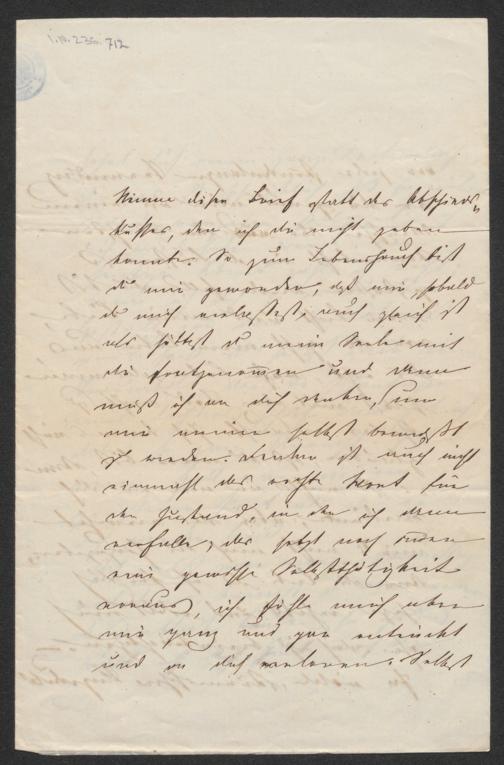 I.N. 235.712
Nimm diesen Brief statt des Abschieds„
kusses, den ich dir nicht geben
konnte. So zum Lebenshauch bist
du mir geworden, daß mir, sobald
du mich verlassest, auch gleich ist
als hättest du meine Seele mit
dir fortgenommen und dann
muß ich an dich denken, um
mir meiner selbst bewußt
zu werden. Denken ist auch nicht
einmahl das rechte Wort für
den Zustand, in den ich dann
verfalle; das setzt noch
eine gewisse Selbstthätigkeit
voraus, ich fühle mich aber
mir ganz und gar entrückt
und an dich verloren. Selbst